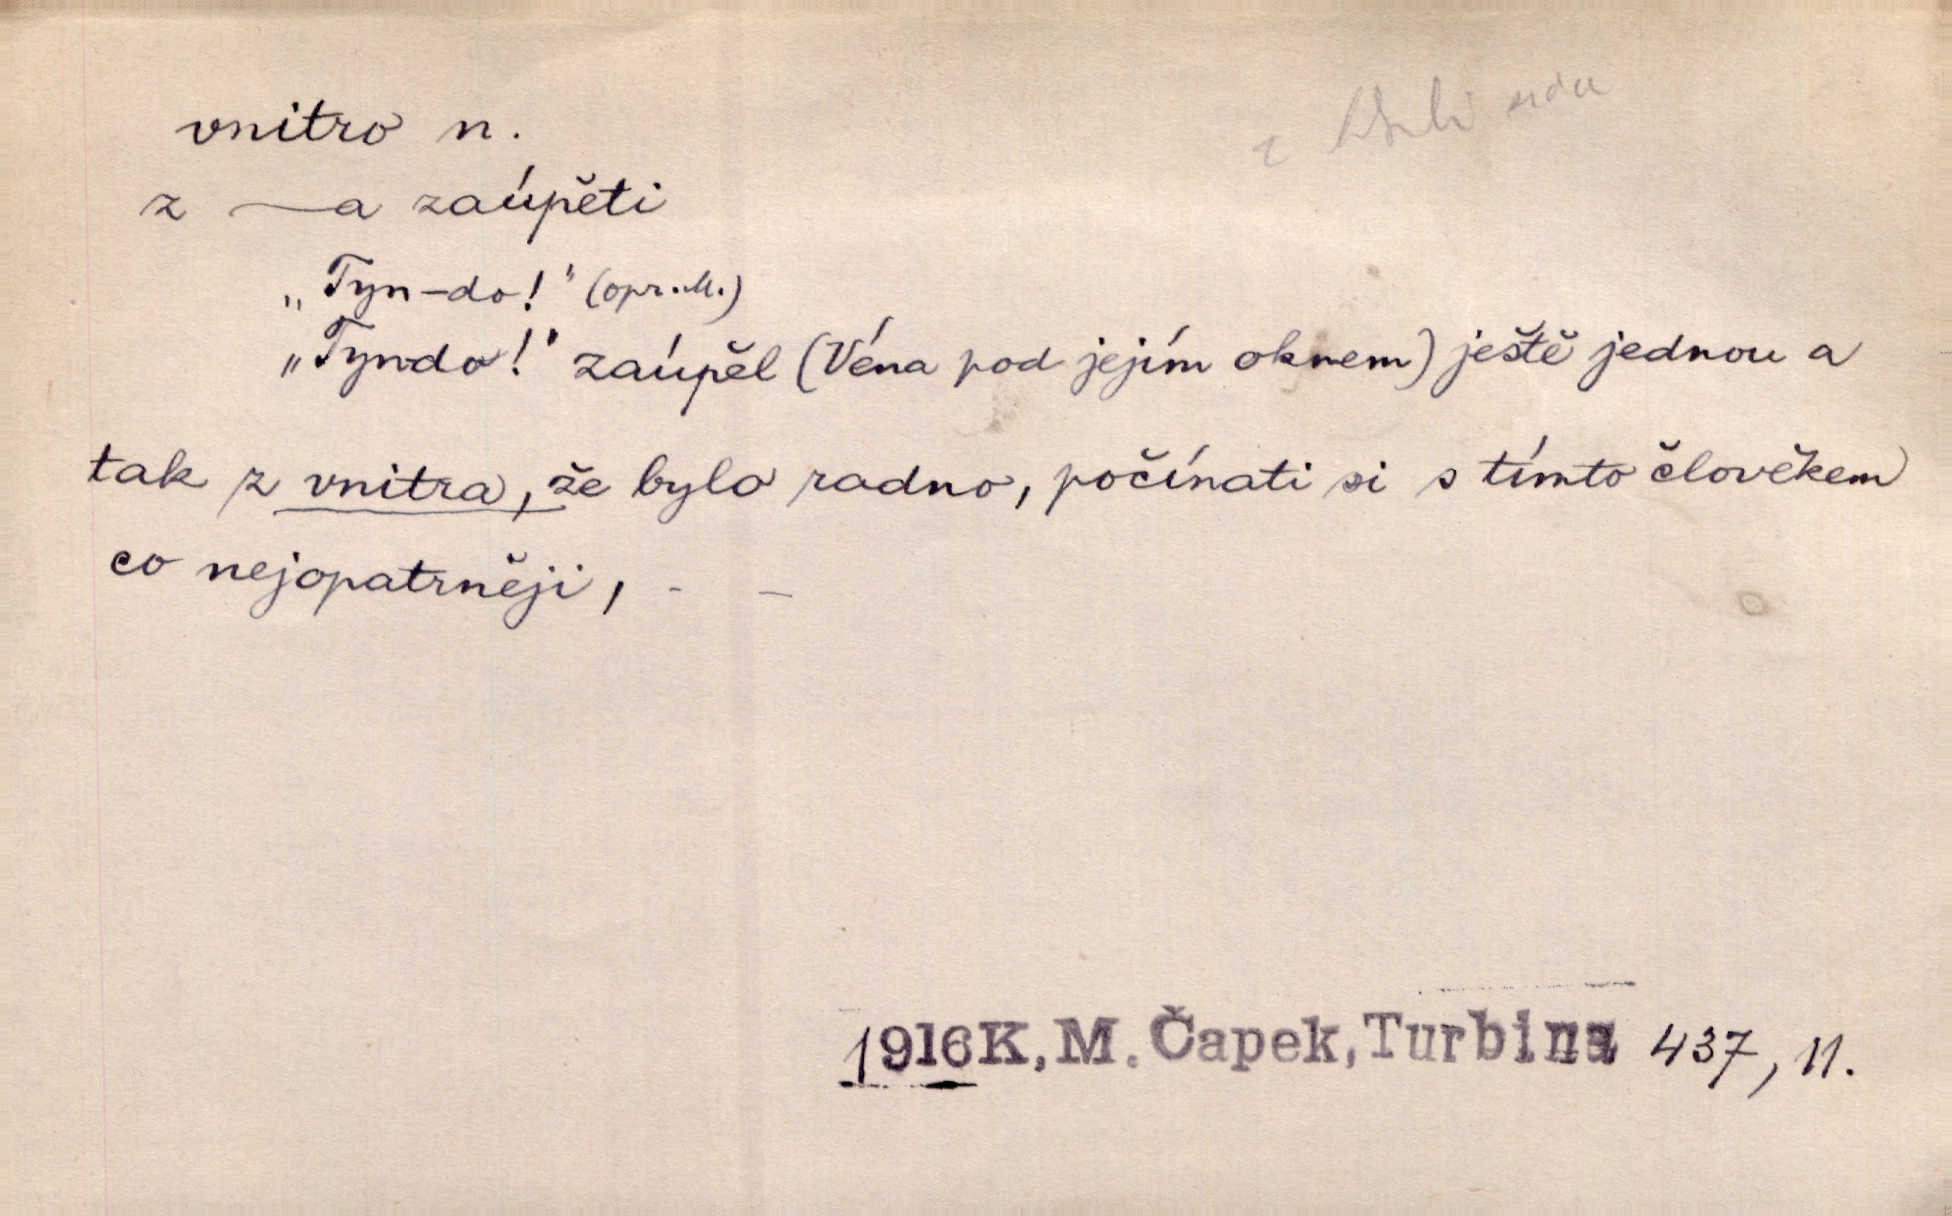 vnitro n.
z —a zaúpěti
„Tyn-do!" (opr. M.)
„Tyndo!" zaúpěl (Véna pod jejím oknem) ještě jednou a
tak z vnitra, že bylo radno, počínati si s tímto člověkem
co nejopatrněji, - -
1916 K. M. Čapek, Turbina 437, 11.